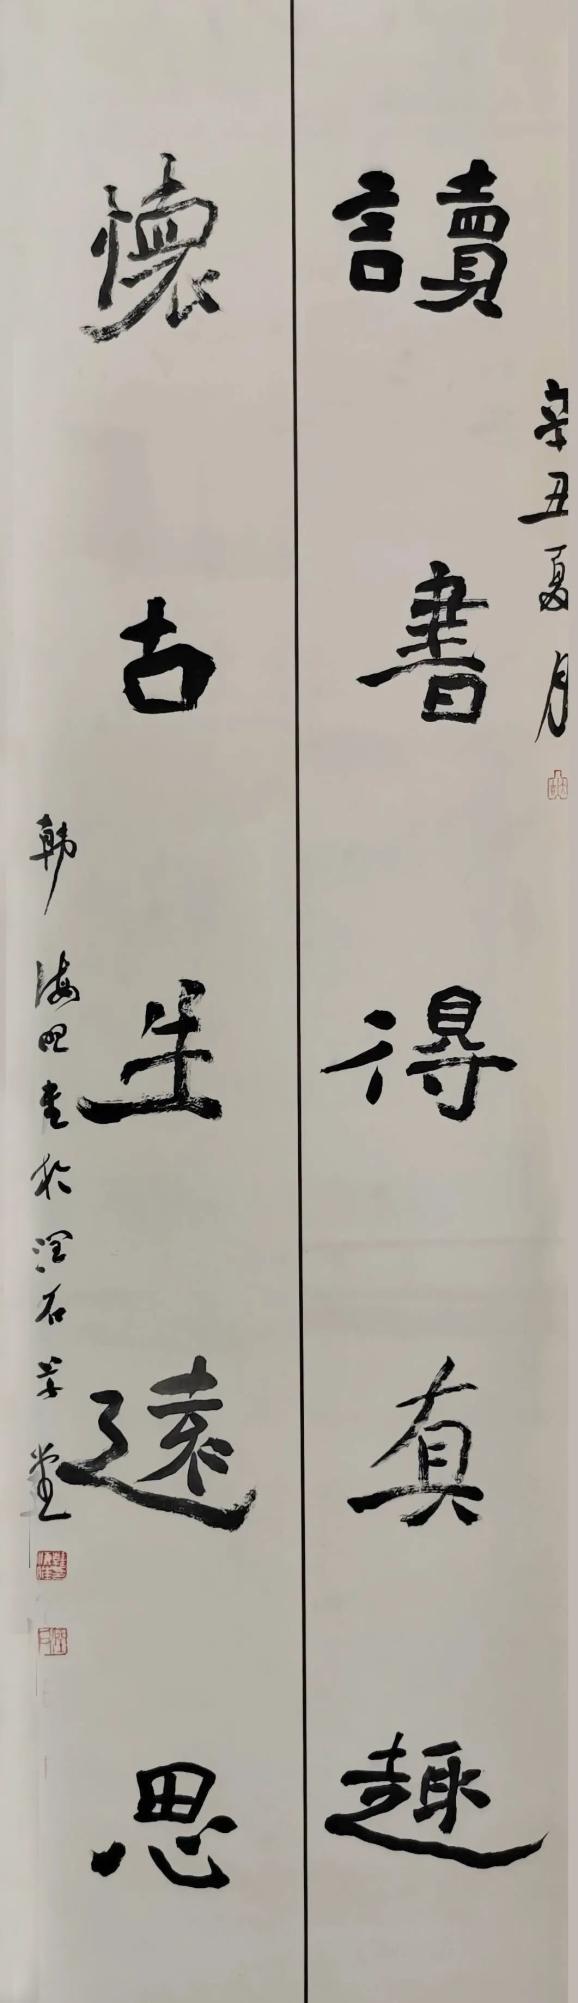 讀書得真趣
辛丑夏月
懷古生遠思
韩海明書於潤石草堂